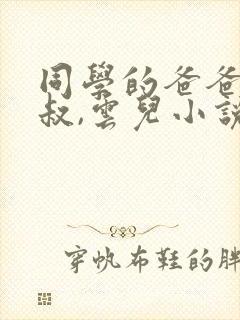 同學的爸爸
叔,雲兒小說
穿帆布鞋的胖